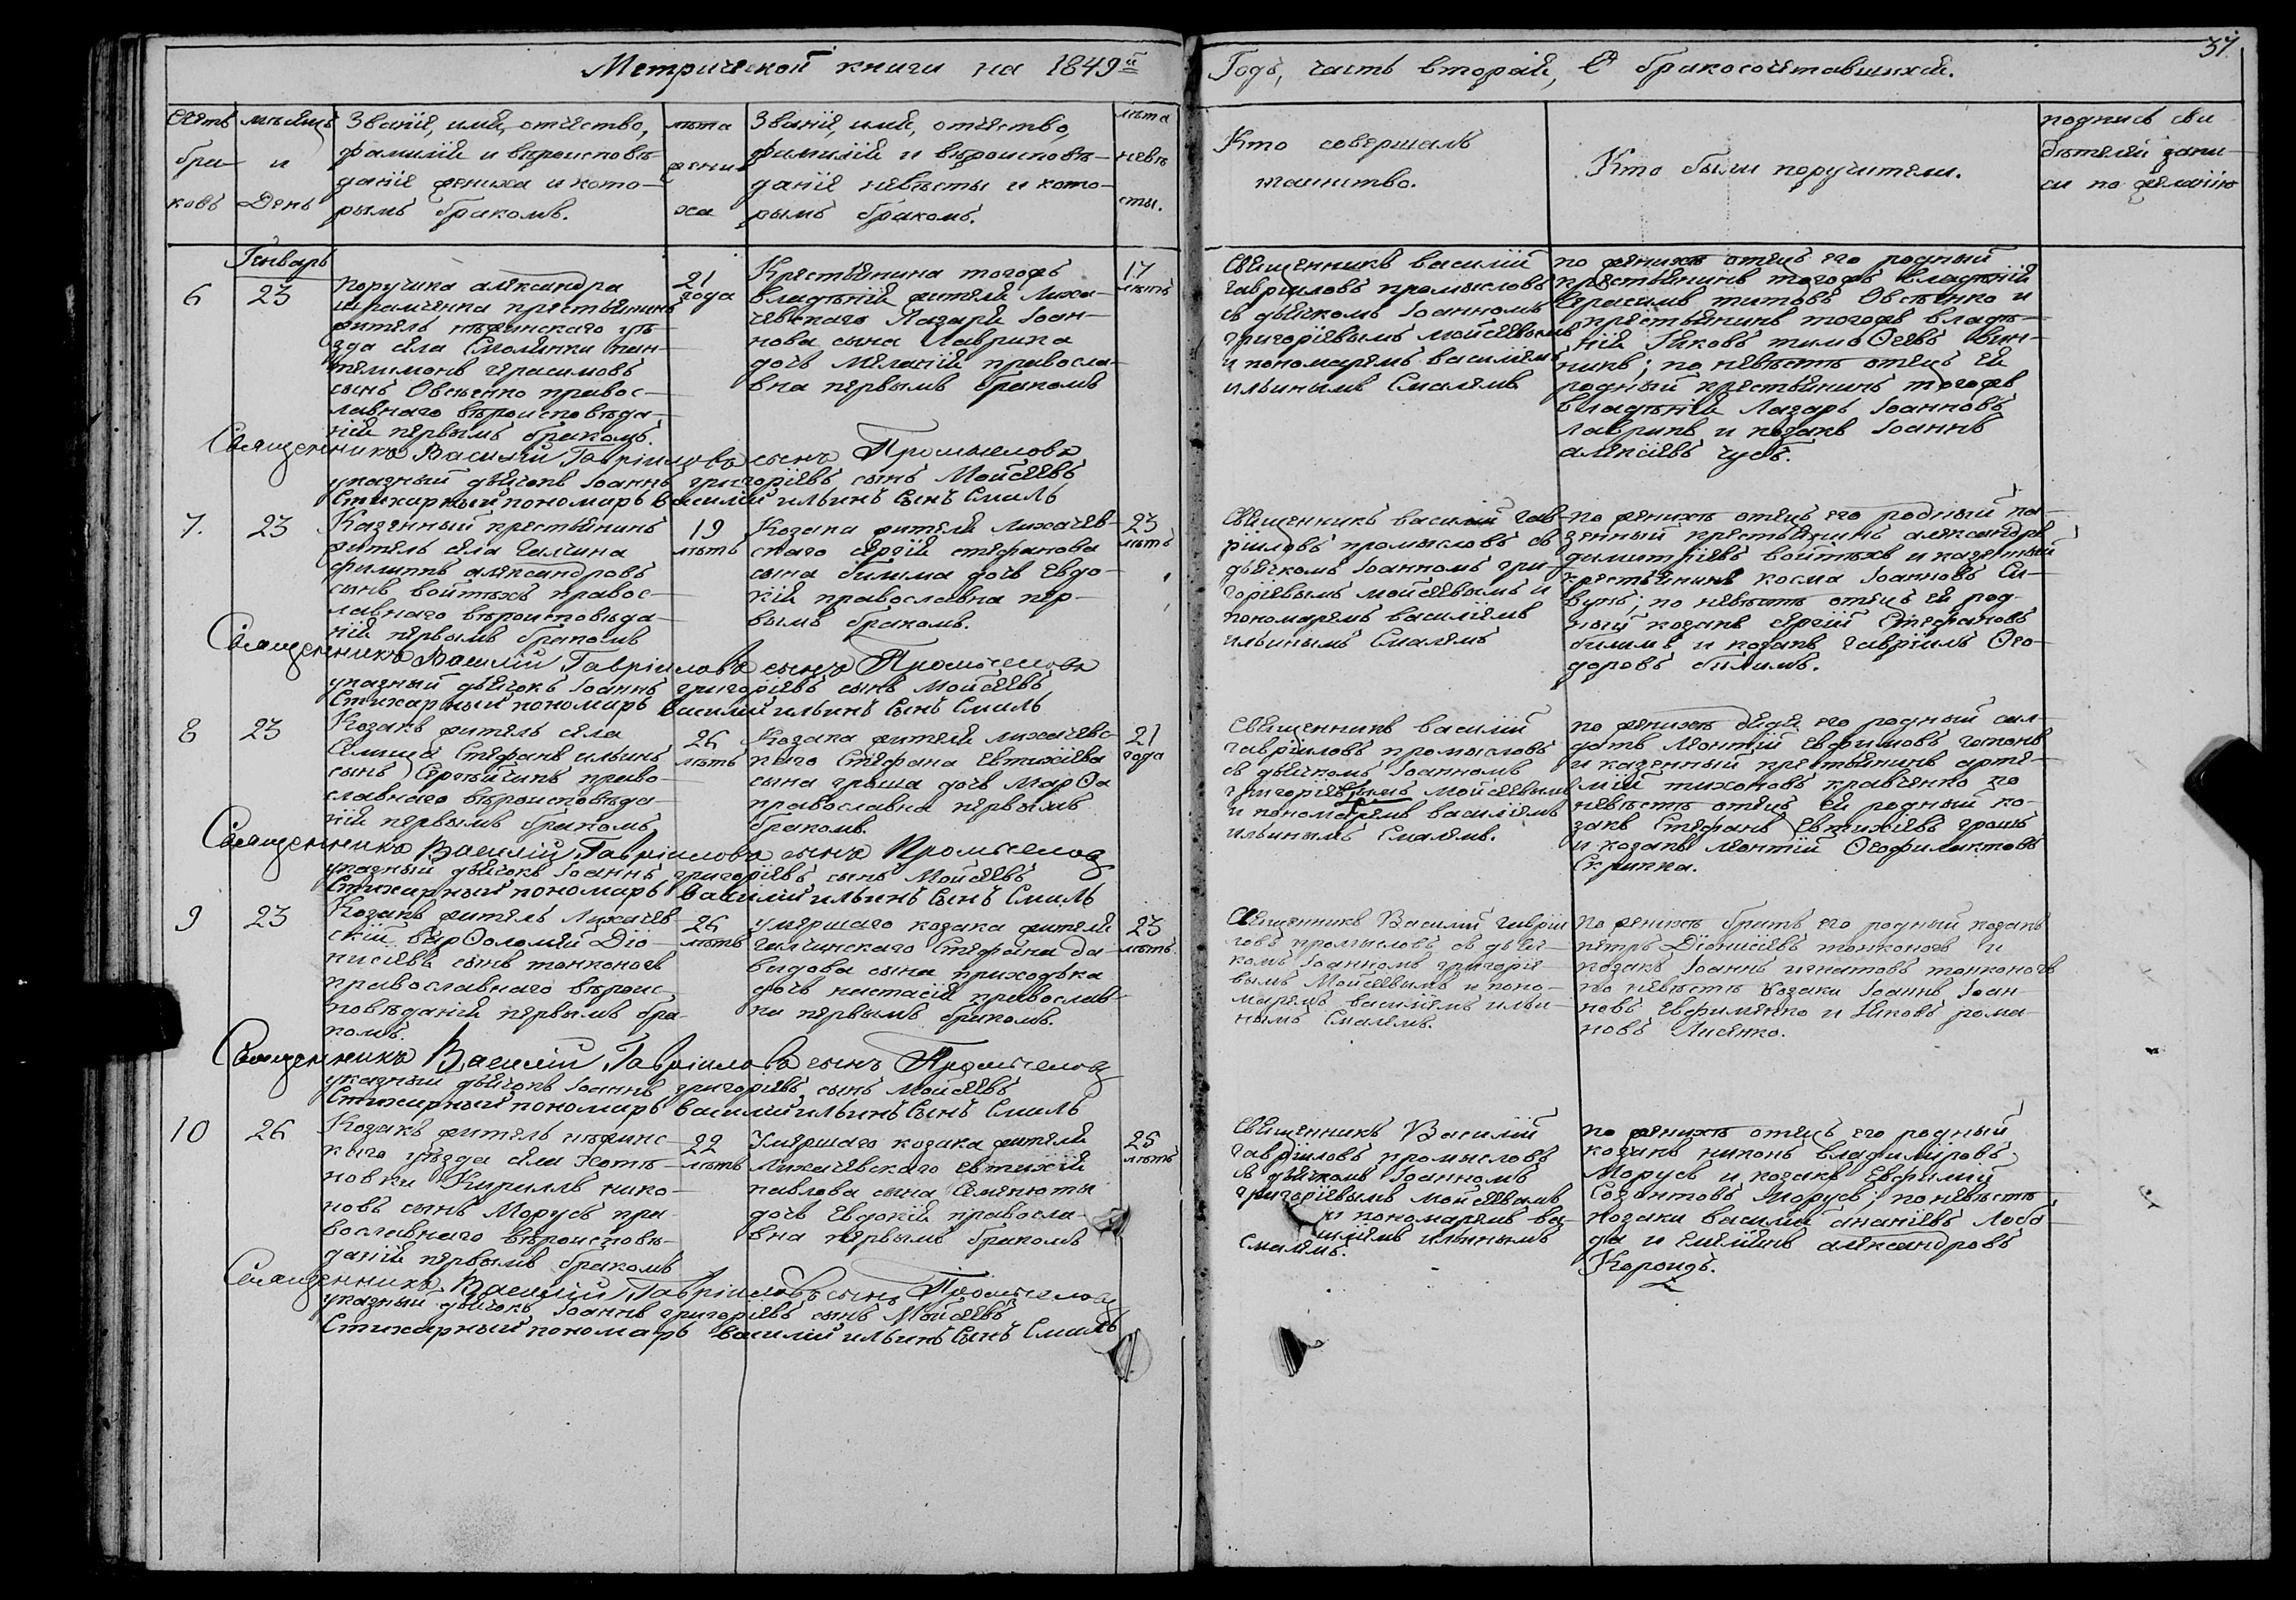 Метрической книги на 1849й
Годъ, часть вторая, О бракосочетавшихся.
37.
Счетъ браковъ
мѣсяцъ и День
Званіе, имя, отчество,
фамилія и вѣроисповѣ-
даніе жениха и кото-
рымъ бракомъ.
лѣта жениха
Званіе, имя, отчество,
фамилія и вѣроисповѣ-
даніе невѣсты и кото-
рымъ бракомъ.
лѣта невѣсты.
Кто совершалъ
таинство.
Кто были поручители.
подпись сви
дѣтелей запи-
си по желанію
Генварь
6
23
Поручика александра
крестьянинъ
житель нѣжинскаго уѣ-
зда села Смолянки пан-
телимонъ герасимовъ
сынъ Овсѣенко правос-
лавнаго вѣроисповѣда-
нія первымъ бракомъ.
21
года
Крестьянина тогожъ
владѣнія жителя Лиха-
чевскаго Лазаря Іоан-
нова сына Лаврика
дочь Меланія правосла-
вна первымъ бракомъ
17
лѣтъ
Священникъ василій
гавріиловъ промысловъ
съ дьячкомъ Іоанномъ
григоріевымъ мойсеевымъ
и пономаремъ василіемъ
ильинымъ Смалемъ
по женихѣ отецъ его родный
крестьянинъ тогожъ владѣнія
Герасимъ титовъ Овсѣенко и
крестьянинъ тогожъ владѣ-
нія Яковъ
нинъ; по невѣстѣ отецъ ея
родный крестьянинъ тогожъ
владѣнія Лазарь Іоанновъ
Лаврикъ и козакъ Іоаннъ
алексіевъ Чусь.
Священникъ Василій Гавріиловъ сынъ Промысловъ
указный дьячокъ Іоаннъ григоріевъ сынъ Мойсеевъ
Стихарный пономарь василій ильинъ Сынъ Смаль
7.
23
Казенный крестьянинъ
житель села Галчина
филиппъ александровъ
сынъ войтѣхъ правос-
лавнаго вѣроисповѣда-
нія первымъ бракомъ
19
лѣтъ
Козака жителя лихачев-
скаго сергія стефанова
сына билима дочь Евдо-
кія православна пер-
вымъ бракомъ.
23
лѣтъ
Священникъ василій гав-
ріиловъ промысловъ съ
дьячкомъ Іоанномъ гри-
горіевымъ мойсеевымъ и
пономаремъ василіемъ
ильинымъ Смалемъ
по женихѣ отецъ его родный ка-
зенный крестьянинъ александръ
димитріевъ войтѣхъ и казенный
крестьянинъ косма Іоанновъ Си-
вунъ; по невѣстѣ отецъ ея род-
ный козакъ сергій Стефановъ
билимъ и козакъ гавріилъ Ѳео-
доровъ билимъ.
Священникъ Василій Гавріиловъ сынъ Промысловъ
указный дьячокъ Іоаннъ григоріевъ сынъ Мойсеевъ
Стихарный пономарь василій ильинъ Сынъ Смаль
8
23
Козакъ житель села
Селища Стефанъ ильинъ
сынъ право-
славнаго вѣроисповѣда-
нія первымъ бракомъ
26
лѣтъ
Козака жителя лихачевс-
каго Стефана Евтихіева
сына гроша дочь Марѳа
православна первымъ
бракомъ.
21
года
Священникъ василій
гавріиловъ промысловъ
съ дьячкомъ Іоанномъ
григоріевымъ Мойсеевымъ
и пономаремъ василіемъ
ильинымъ Смалемъ.
по женихѣ дядя его родный сол-
датъ Леонтій Евфимовъ
и казенный крестьянинъ арте-
мій тихоновъ кравченко по
невѣстѣ отецъ ея родный ко-
закъ Стефанъ Евтихіевъ грошъ
и козакъ леонтій Ѳеофилактовъ
Скрипка.
Священникъ Василій Гавріиловъ сынъ Промысловъ
указный дьячокъ Іоаннъ григоріевъ сынъ Мойсеевъ
Стихарный пономарь василій ильинъ Сынъ Смаль
9
23
Козакъ житель Лихачев-
скій варѳоломей Діо-
нисіевъ сынъ тонконогъ
православнаго вѣроис-
повѣданія первымъ бра-
комъ.
26
лѣтъ
умершаго козака жителя
галчинскаго Стефана да-
видова сына приходька
дочь настасія православ-
на первымъ бракомъ.
23
лѣтъ.
Священникъ Василій гавріи
ловъ промысловъ съ дьяч-
комъ Іоанномъ григоріе-
вымъ Мойсеевымъ и поно-
маремъ василіемъ ильи-
нымъ Смалемъ.
По женихѣ братъ его родный козакъ
петръ Діонисіевъ тонконогъ и
козакъ Іоаннъ игнатовъ тонконогъ
по невѣстѣ козаки Іоаннъ Іоан-
новъ Евфименко и Яковъ рома-
новъ Лисенко.
Священникъ Василій Гавріиловъ сынъ Промысловъ
указный дьячокъ Іоаннъ григоріевъ сынъ Мойсеевъ
Стихарный пономарь василій ильинъ Сынъ Смаль
10
26
Козакъ житель нѣжинс-
каго уѣзда села Хотѣ-
новки Кириллъ нико-
новъ сынъ Морусь пра-
вославнаго вѣроисповѣ-
данія первымъ бракомъ
22
лѣтъ
Умершаго козака жителя
Лихачевскаго евтихія
павлова сына Семенюты
дочь Евдокія правосла-
вна первымъ бракомъ
25
лѣтъ
Священникъ Василій
гавріиловъ промысловъ
съ дьячкомъ Іоанномъ
григоріевымъ мойсеевымъ
и пономаремъ ва-
силіемъ ильинымъ
Смалемъ.
по женихѣ отецъ его родный
козакъ никонъ владимировъ
Морусь и козакъ Евфимій
Созонтовъ Морусь; по невѣстѣ
козаки василій ананіевъ Лобо
да и емеліянъ александровъ
Короидъ.
Священникъ Василій Гавріиловъ сынъ Промысловъ
указный дьячокъ Іоаннъ григоріевъ сынъ Мойсеевъ
Стихарный пономарь василій ильинъ Сынъ Смаль